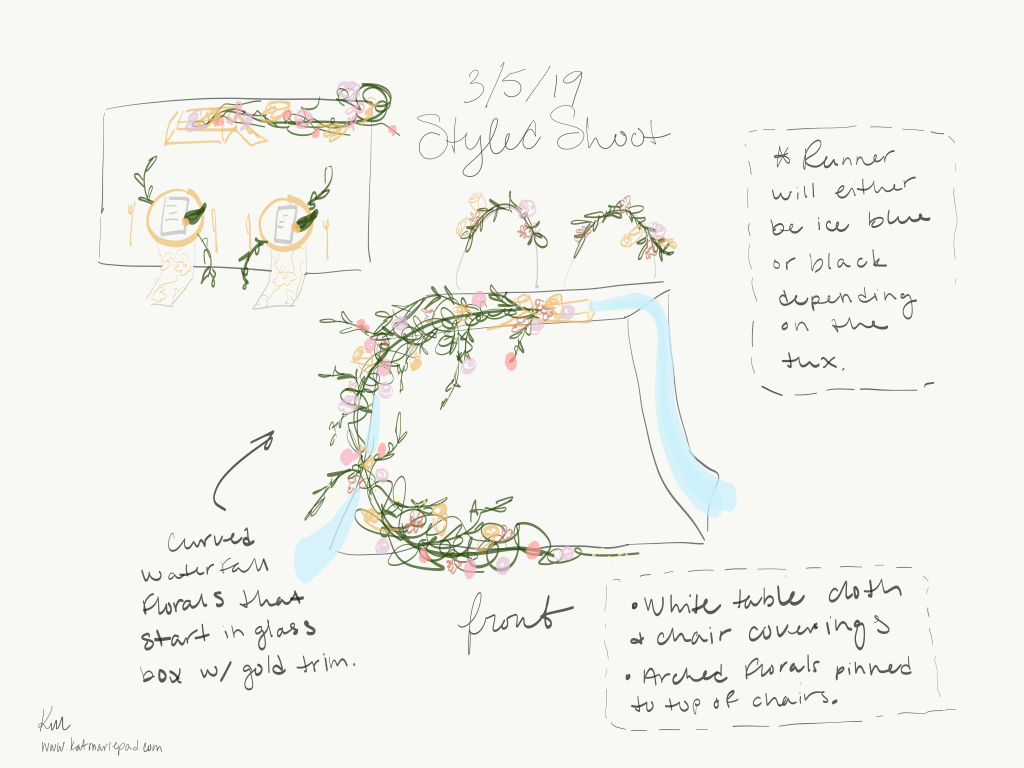 3/5/19
Styled Shoot
* Runner
will either
be ice blue
or black
depending
on the
tux.
curved
waterfall
florals that
start in glass
box w/ gold trim.
front
• White table cloth
& chair coverings
• Arched florals pinned
to top of chairs.
KM
www.katmariepad.com